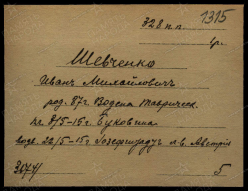 328 п.п. 1315
Шевченко
Иванъ Михайловичъ
род. 87г. Водена Тавричес.
пл. 8/5-15г Буковина
водв. 22/5-15г Іозефштадтъ л.в. Австрія